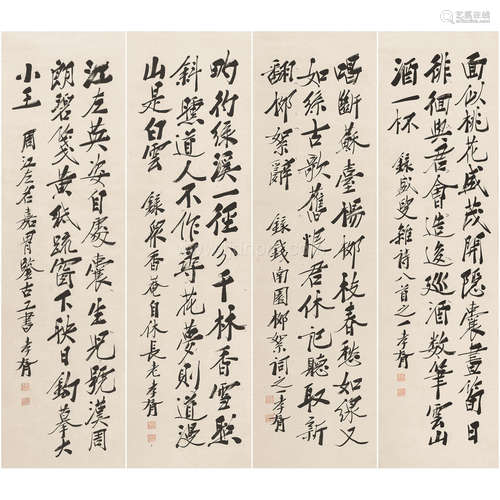 面似桃花盛茂開隱囊畫笏日
徘徊與君會造逡巡酒數筆雲山
酒一杯 錄盛叟雜詩八首之一孝胥
唱斷蘇臺楊柳枝春愁如線又
如絲古歌舊恨君休記聽取新
翻柳絮辭 錄錢南園柳絮詞之一孝胥
竹綠溪一徑分千林香雪照
斜曛道人不作尋花夢則道漫
山是白雲 錄眾香菴自休長老孝胥
江左英姿自處囊生兒號漢周
朗碧箋黃紙疏窗下映日鉤摹大
小王 周江左石嘉胥鑒古工書 孝胥